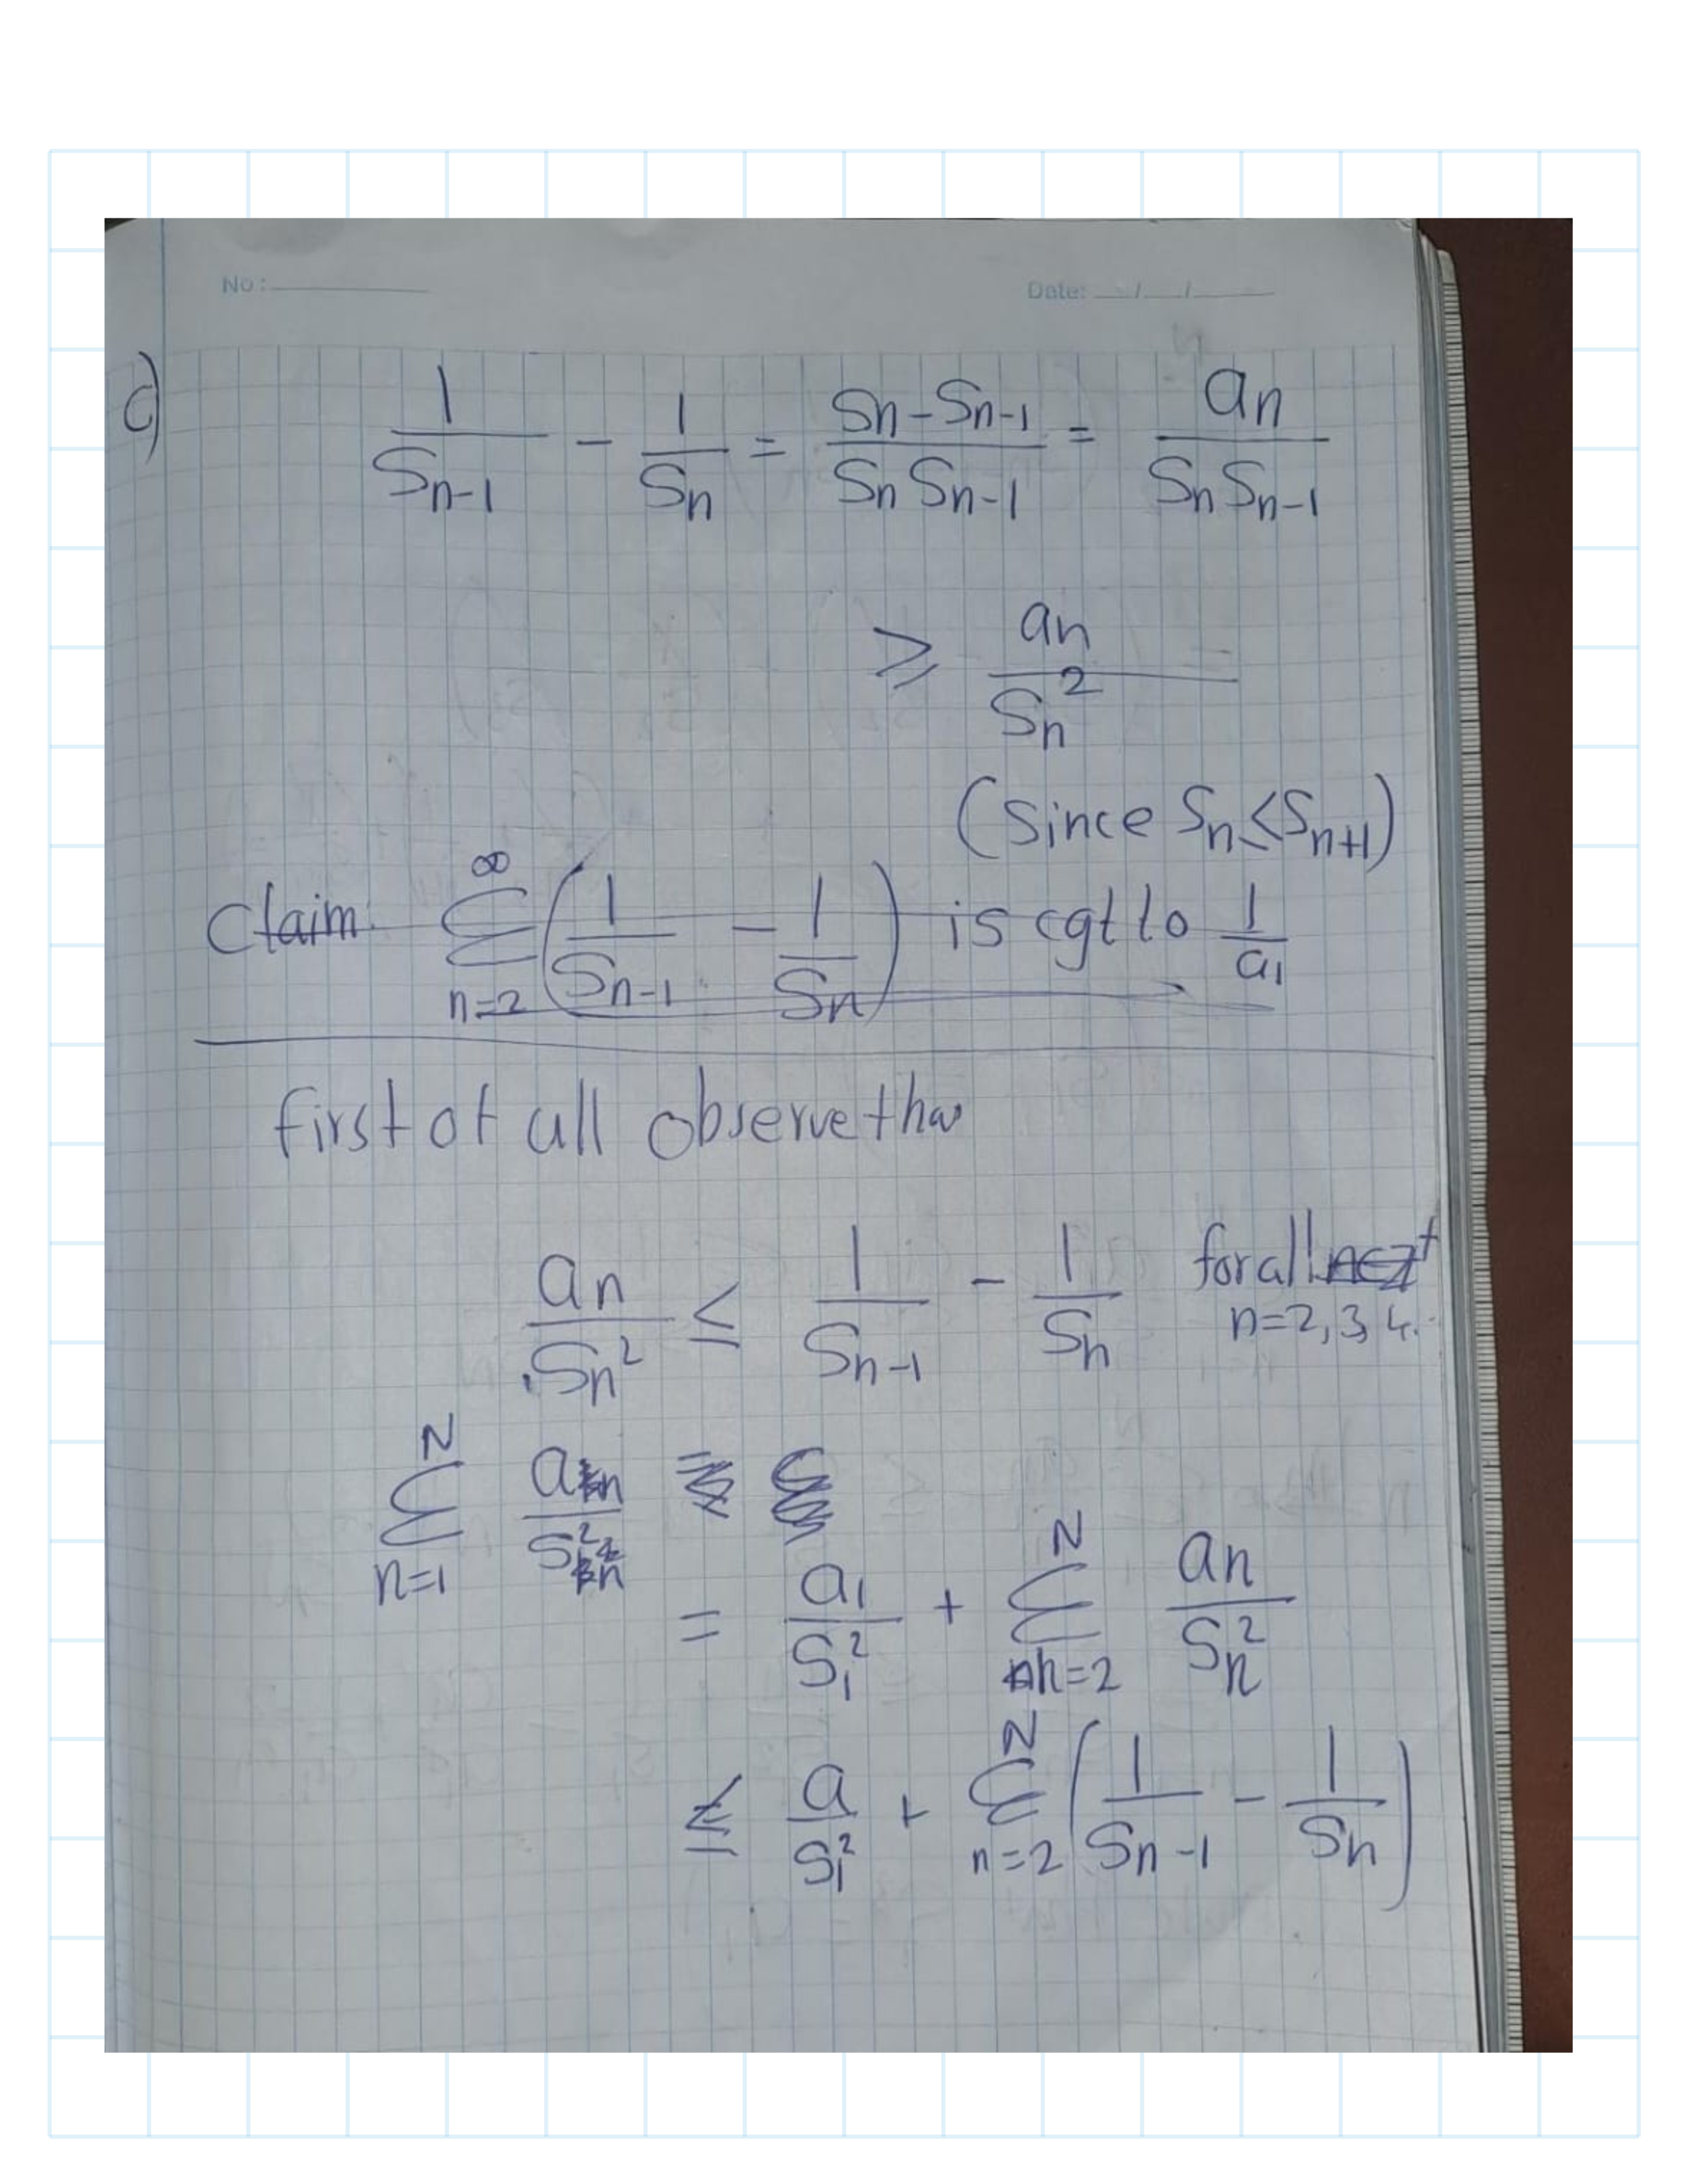 No: Date: / /
c) 1/S_{n-1} - 1/S_n = (S_n - S_{n-1})/(S_n S_{n-1}) = a_n/(S_n S_{n-1})
≥ a_n/S_n^2
(Since S_n < S_{n+1})
Claim: ∑_{n=2}^{∞} (1/S_{n-1} - 1/S_n) is cgt to 1/a_1
first of all observe tha
a_n/S_n^2 ≤ 1/S_{n-1} - 1/S_n for all n∈Z^+
n=2,3,4..
∑_{n=1}^{N} a_n/S_n^2
= a_1/S_1^2 + ∑_{n=2}^{N} a_n/S_n^2
≤ a/S_1^2 + ∑_{n=2}^{N} (1/S_{n-1} - 1/S_n)